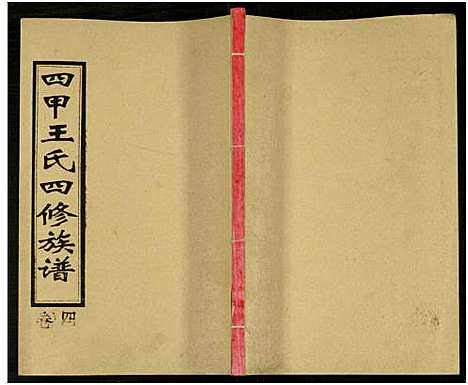 四甲王氏四修族谱
卷四